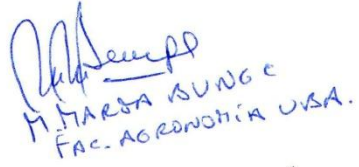 M. MARTA BUNGE
FAC. AGRONOMÍA UBA.